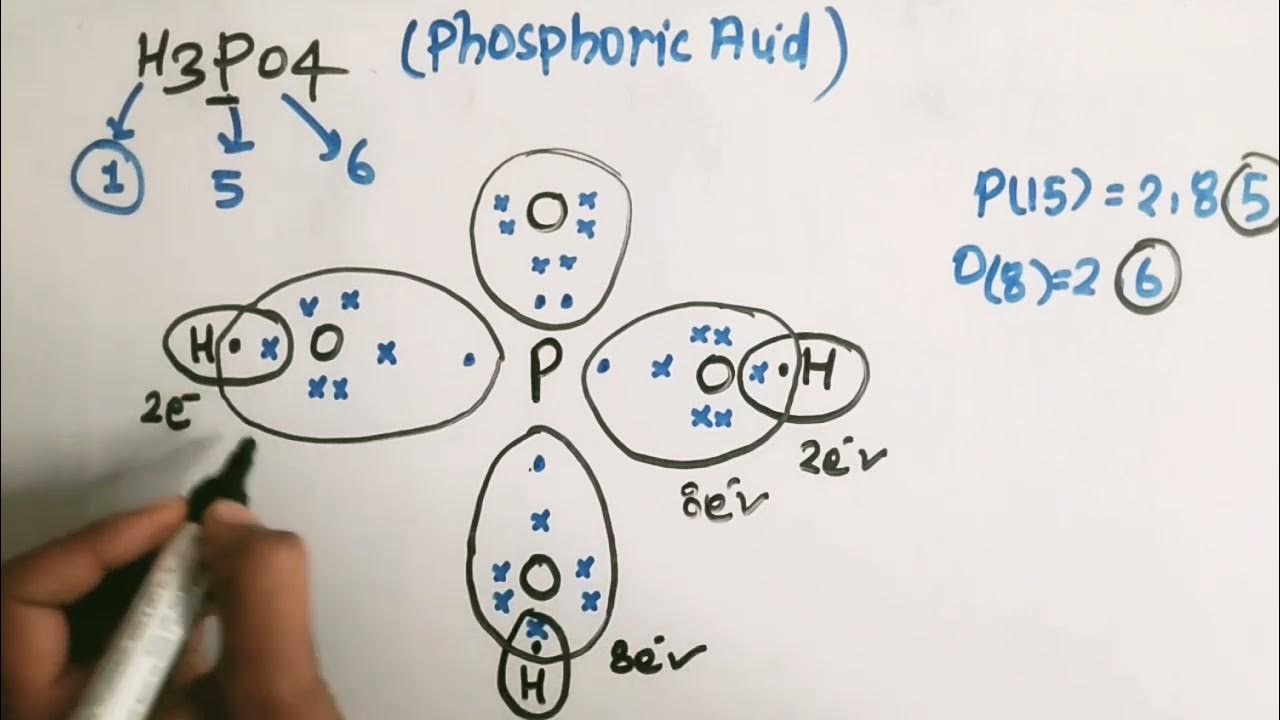 H3PO4 (Phosphoric Auid)
1 5 6
P(15) = 2, 8 5
O(8) = 2 6
O
H O P O H
2e-
2e-v
8e-v
O
8e-v
H